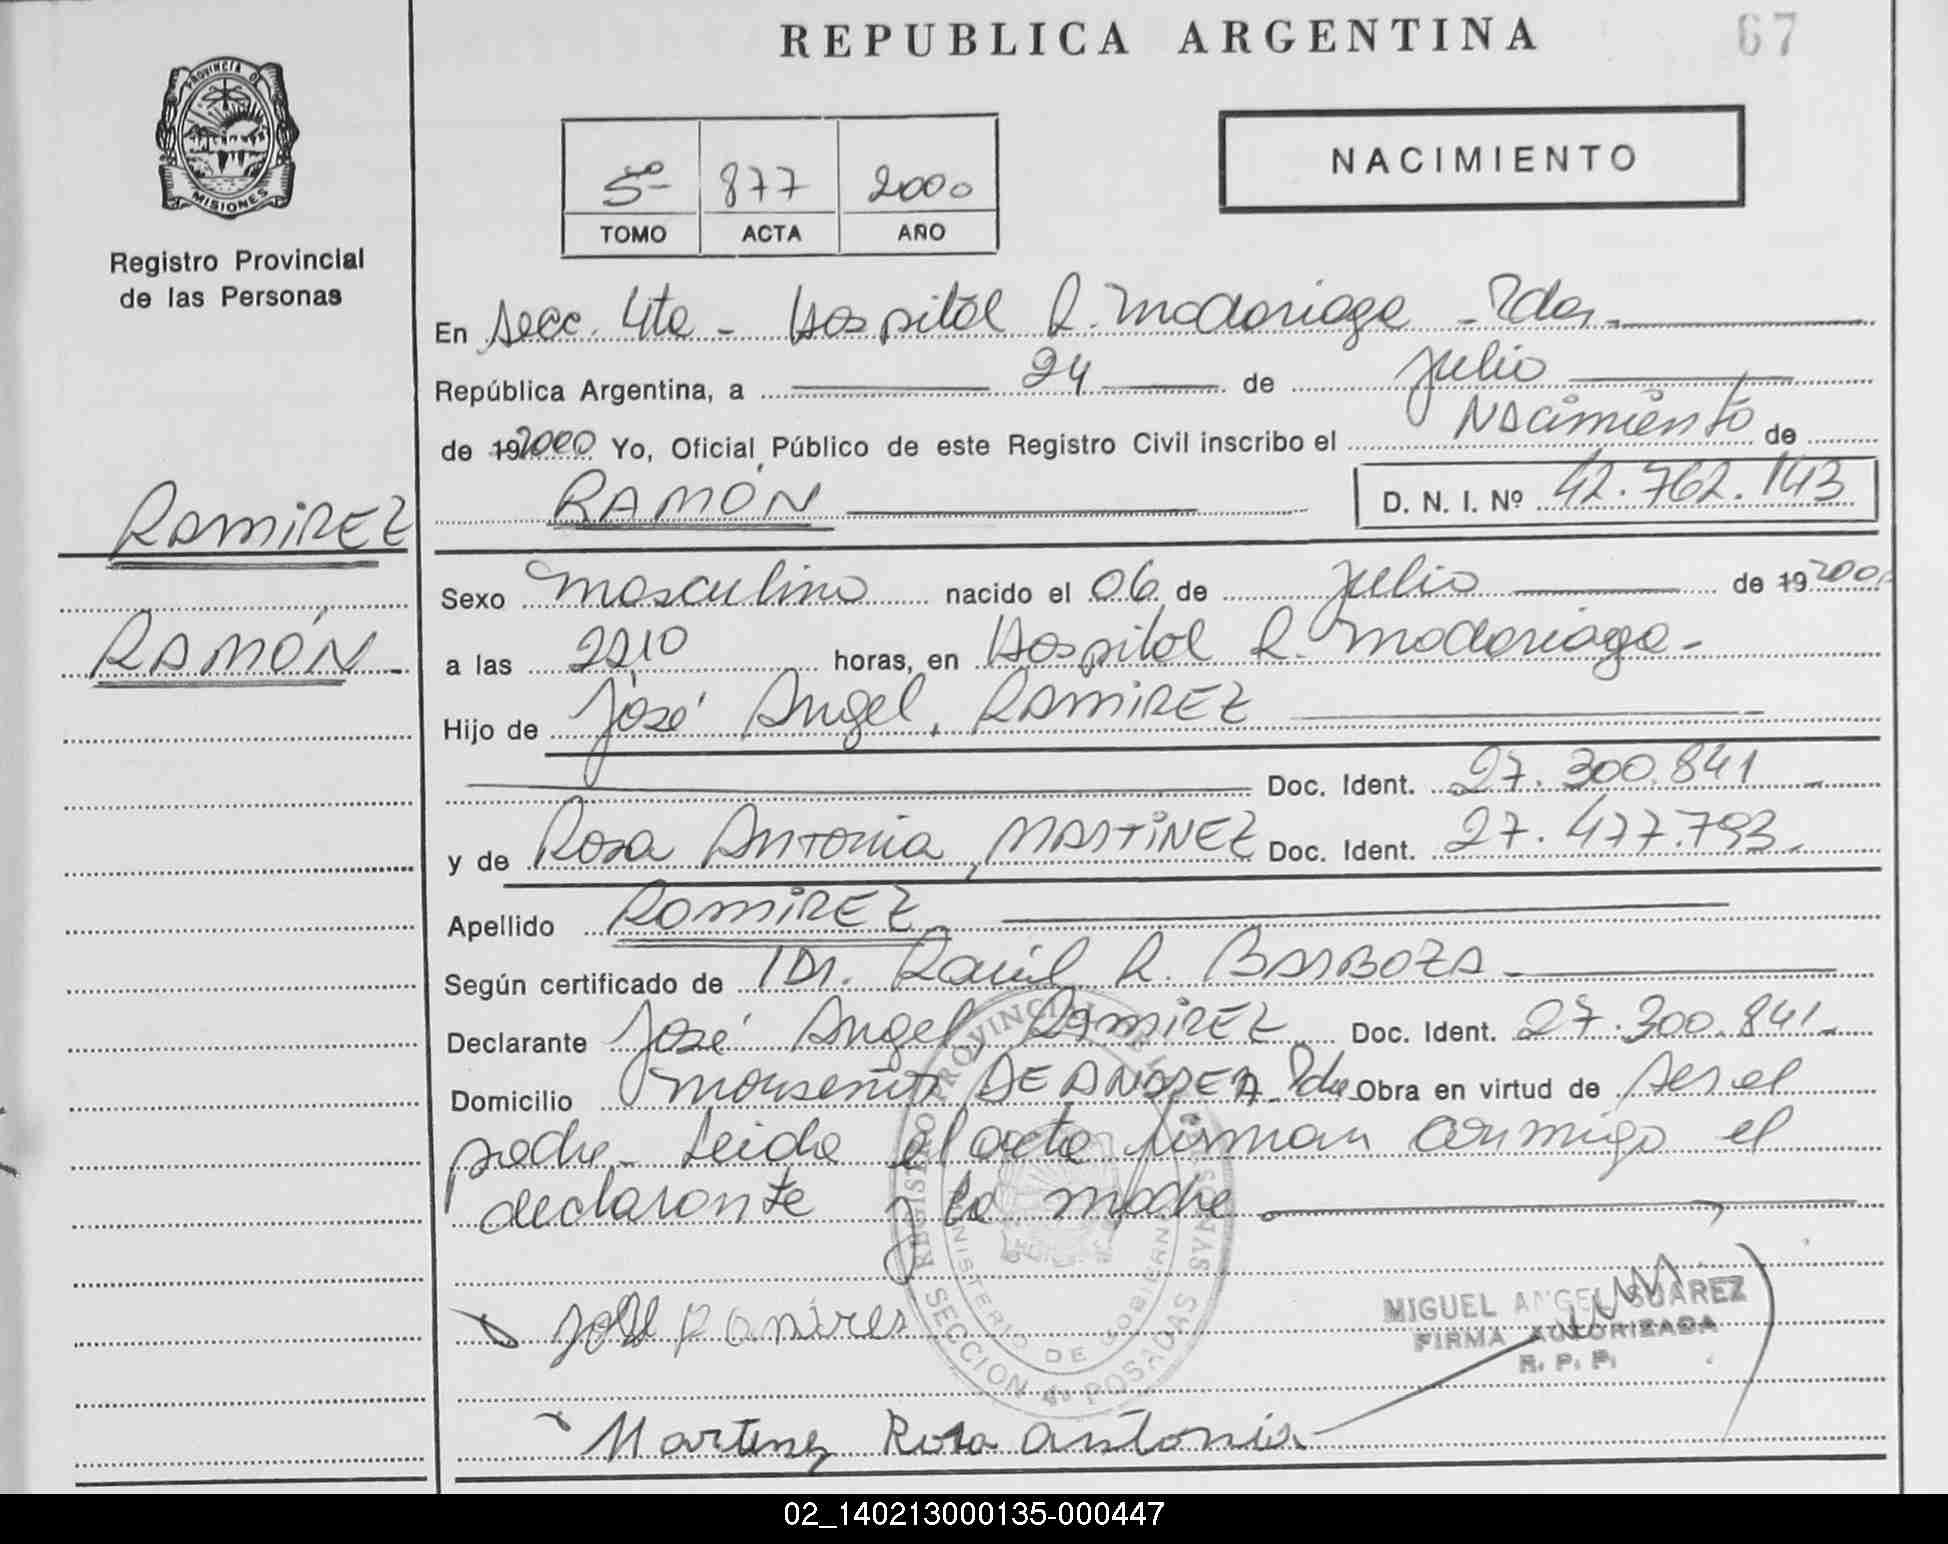 REPUBLICA ARGENTINA
67
PROVINCIA DE
MISIONES
Registro Provincial
de las Personas
5º 877 2000
TOMO ACTA AÑO
NACIMIENTO
En Secc. 4ta - Hospital R. Madariaga - Pdas.
República Argentina, a 24 de Julio
de 192000 Yo, Oficial Público de este Registro Civil inscribo el Nacimiento de
RAMÓN D. N. I. Nº 42.762.143
RAMIREZ
RAMÓN
Sexo masculino nacido el 06 de Julio de 19 2000
a las 2210 horas, en Hospital R. Madariaga -
Hijo de José Angel, RAMIREZ
Doc. Ident. 27.300.841
y de Rosa Antonia, MARTINEZ Doc. Ident. 27.477.793
Apellido RAMIREZ
Según certificado de Dr. Raúl R. BARBOZA
Declarante José Angel RAMIREZ Doc. Ident. 27.300.841
Domicilio Monseñor DE ANDREA Pdas Obra en virtud de ser el
padre - Leida el acta firman conmigo el
declarante y la madre
REGISTRO PROVINCIAL DE LAS PERSONAS
MINISTERIO DE GOBIERNO
SECCION 4a POSADAS
José Ramires
MIGUEL ANGEL SUAREZ
FIRMA AUTORIZADA
R. P. P.
Martinez Rosa Antonia
02_140213000135-000447